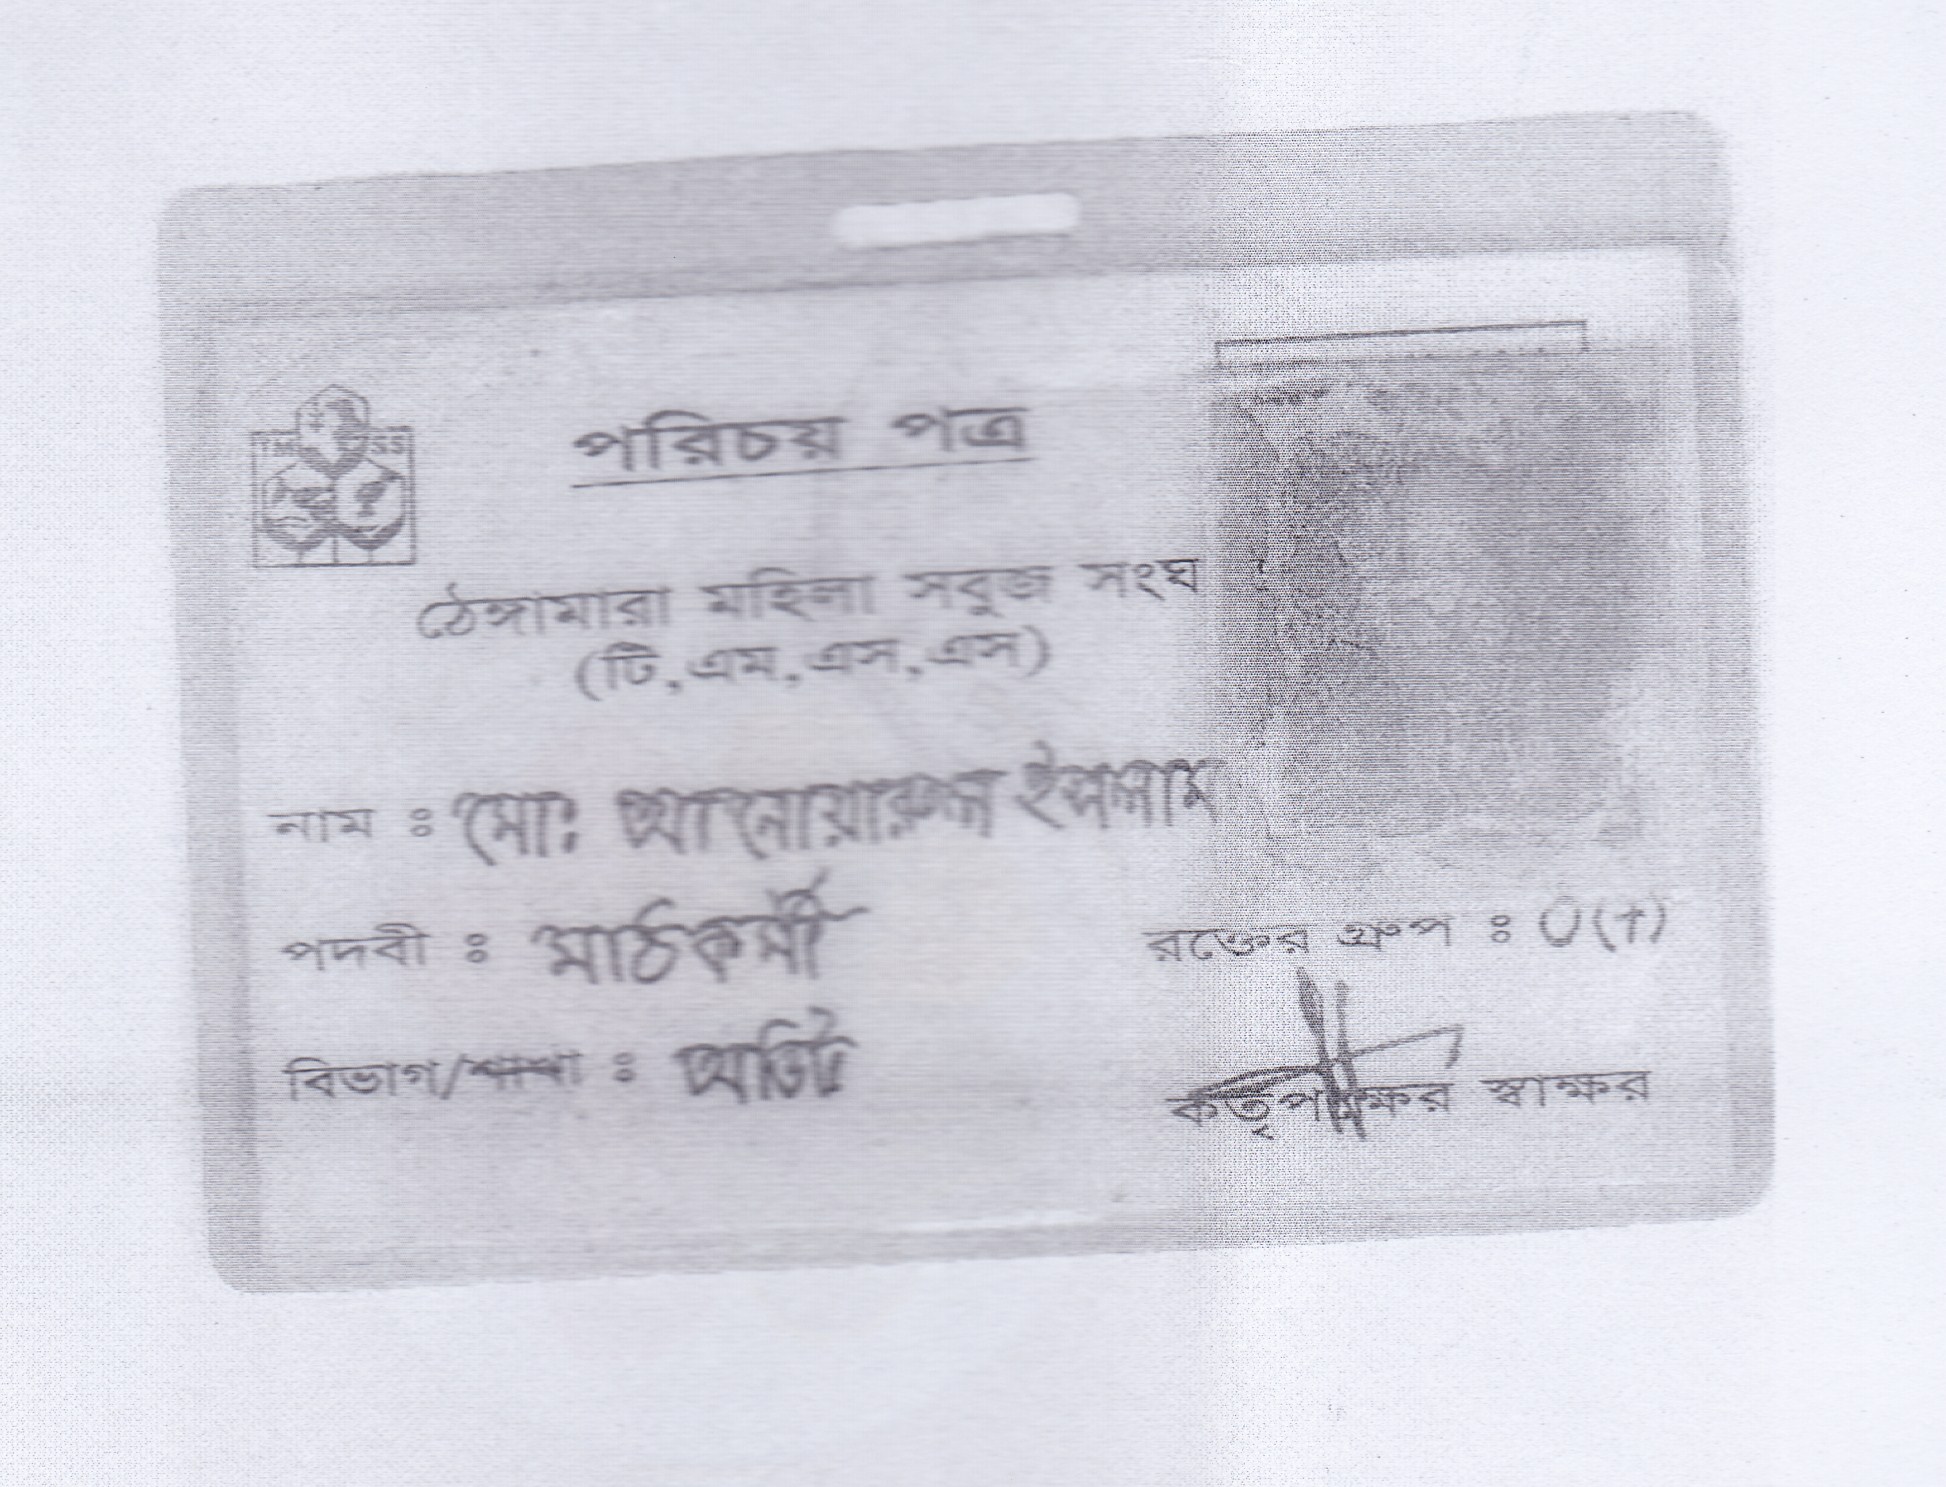 পরিচয় পত্র
ঠেঙ্গামারা মহিলা সবুজ সংঘ
(টি,এম,এস,এস)
নাম ঃ মোঃ আনোয়ারুল ইসলাম
পদবী ঃ মাঠকর্মী
রক্তের গ্রুপ ঃ O(+)
বিভাগ/শাখা ঃ অডিট
কর্তৃপক্ষের স্বাক্ষর